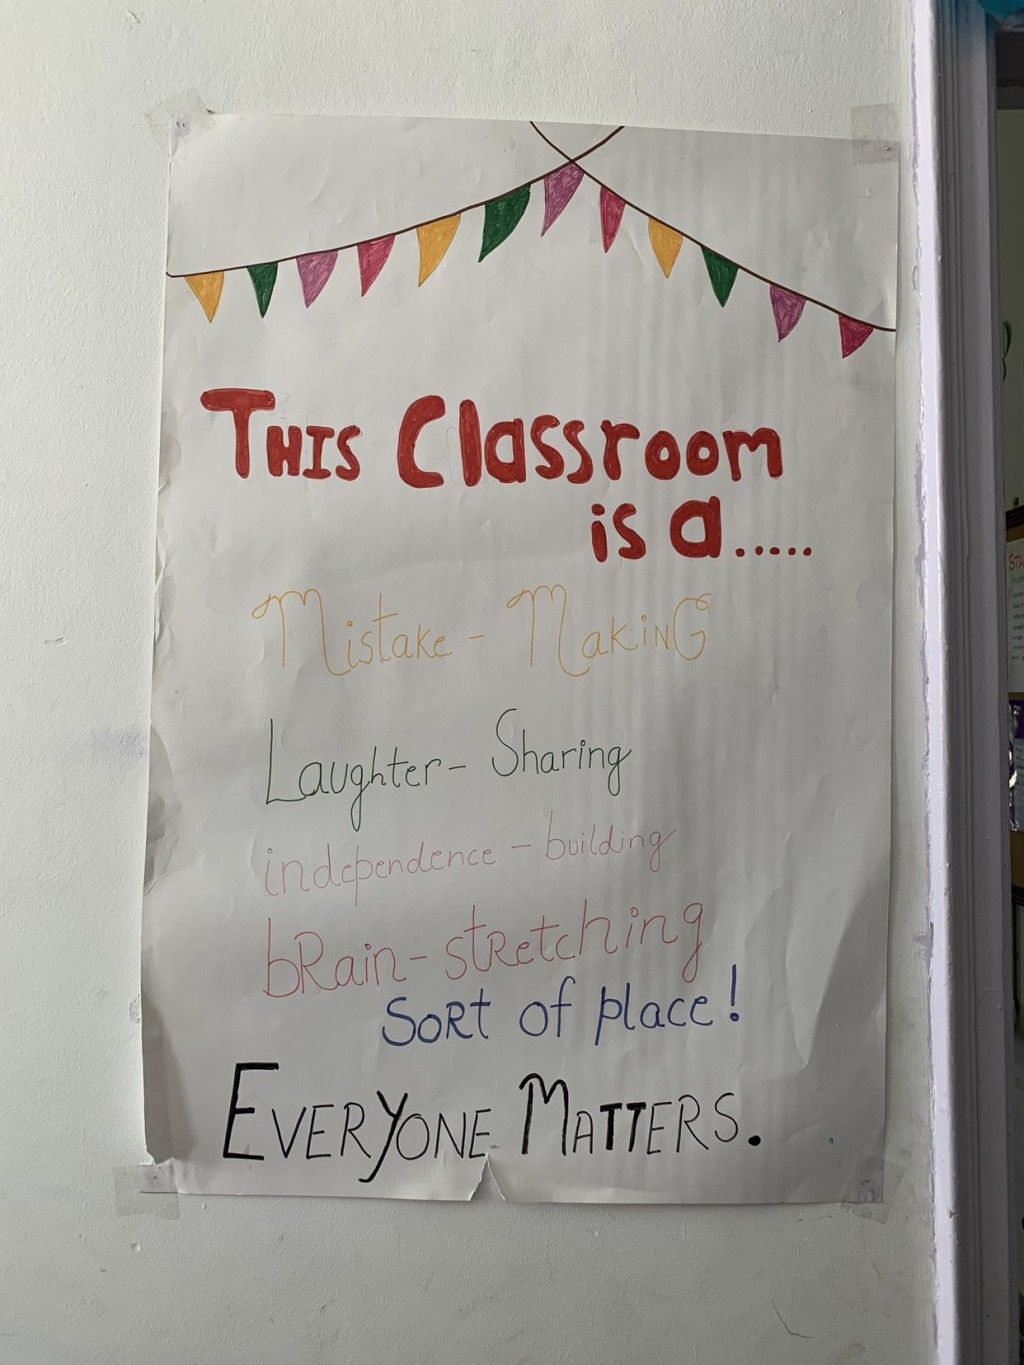 THIS Classroom
is a.....
Mistake - MakiNG
Laughter - Sharing
independence - building
bRain - stRetching
SoRt of place!
EVERYONE MATTERS.